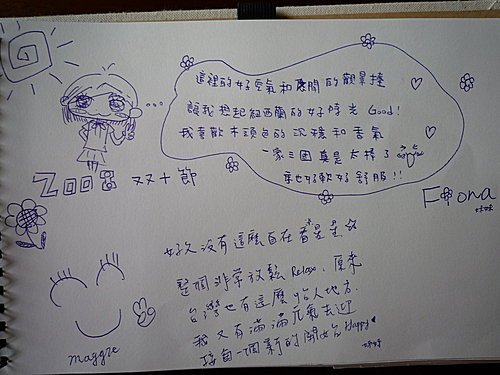 這裡的好空氣和遼闊的觀景檯
讓我想起紐西蘭的好時光 Good!
我喜歡木頭色的沉穩和香氣
一家三國 真是太棒了
床也好軟好舒服!!
2008 双十節
Fiona
好久沒有這麼自在看星星
整個非常放鬆 Relax, 原來
台灣也有這麼怡人地方.
我又有滿滿元氣去迎
接每一個新的開始 Happy
maggie